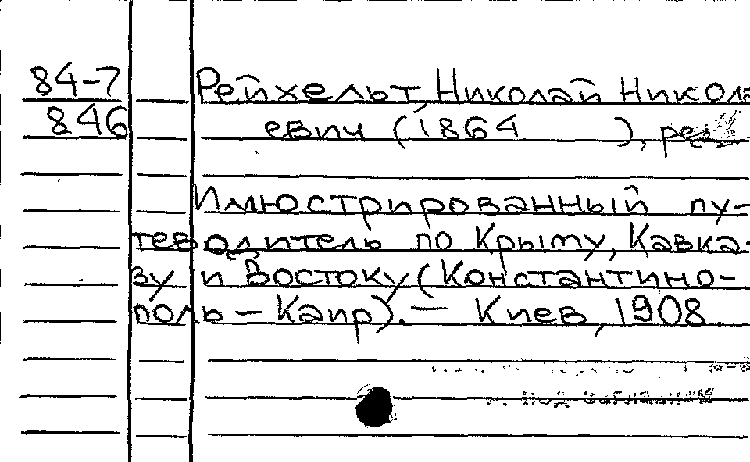 84-7
846
Рейхельт, Николай Никола
евич (1864 ), ред
Иллюстрированный пу-
теводитель по Крыму, Кавка-
зу и Востоку (Константино-
поль - Каир). - Киев, 1908
под заглавием